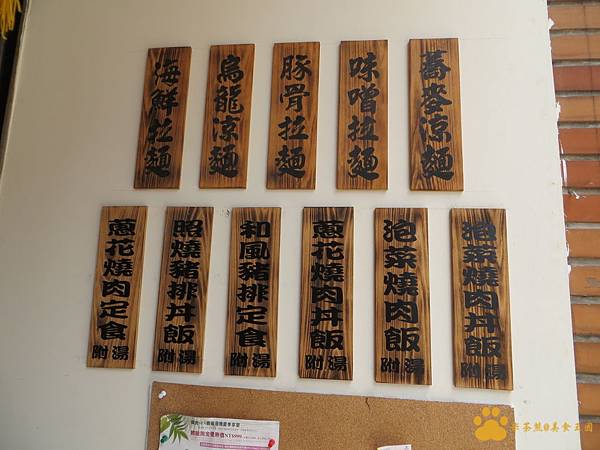 海鮮拉麵
烏龍涼麵
豚骨拉麵
味噌拉麵
蕎麥涼麵
蔥花燒肉定食
附湯
照燒豬排丼飯
附湯
和風豬排定食
附湯
蔥花燒肉丼飯
附湯
泡菜燒肉飯
附湯
泡菜燒肉丼飯
附湯